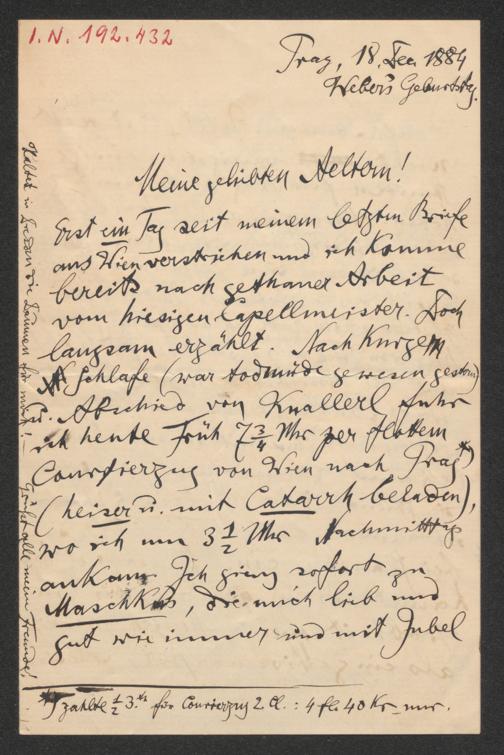 I.N. 192.432
Prag, 18. Dec. 1884
Weber's Geburtstg.
Meine geliebten Aeltern!
Erst ein Tag seit meinem letzten Briefe
aus Wien verstrichen und ich komme
bereits nach gethaner Arbeit
vom hiesigen Capellmeister. Doch
langsam erzählt. Nach kurzem
Schlafe (war todmüde gewesen gestern)
u. Abschied von Knallerl fuhr
ich heute Früh 7 3/4 Uhr per flottem
Courfierzug von Wien nach Prag *)
(heiser u. mit Catarrh beladen),
wo ich um 3 1/2 Uhr Nachmittag
ankam. Ich gieng sofort zu
Maschkas, die mich lieb und
gut wie immer und mit Jubel
*) zahlte 1/2 3. für Courierzug 2. Cl.: 4 fl. 40 Kr. nur.
Haltet in Dresden die Daumen für mich! — Grüßt alle meine Freunde!